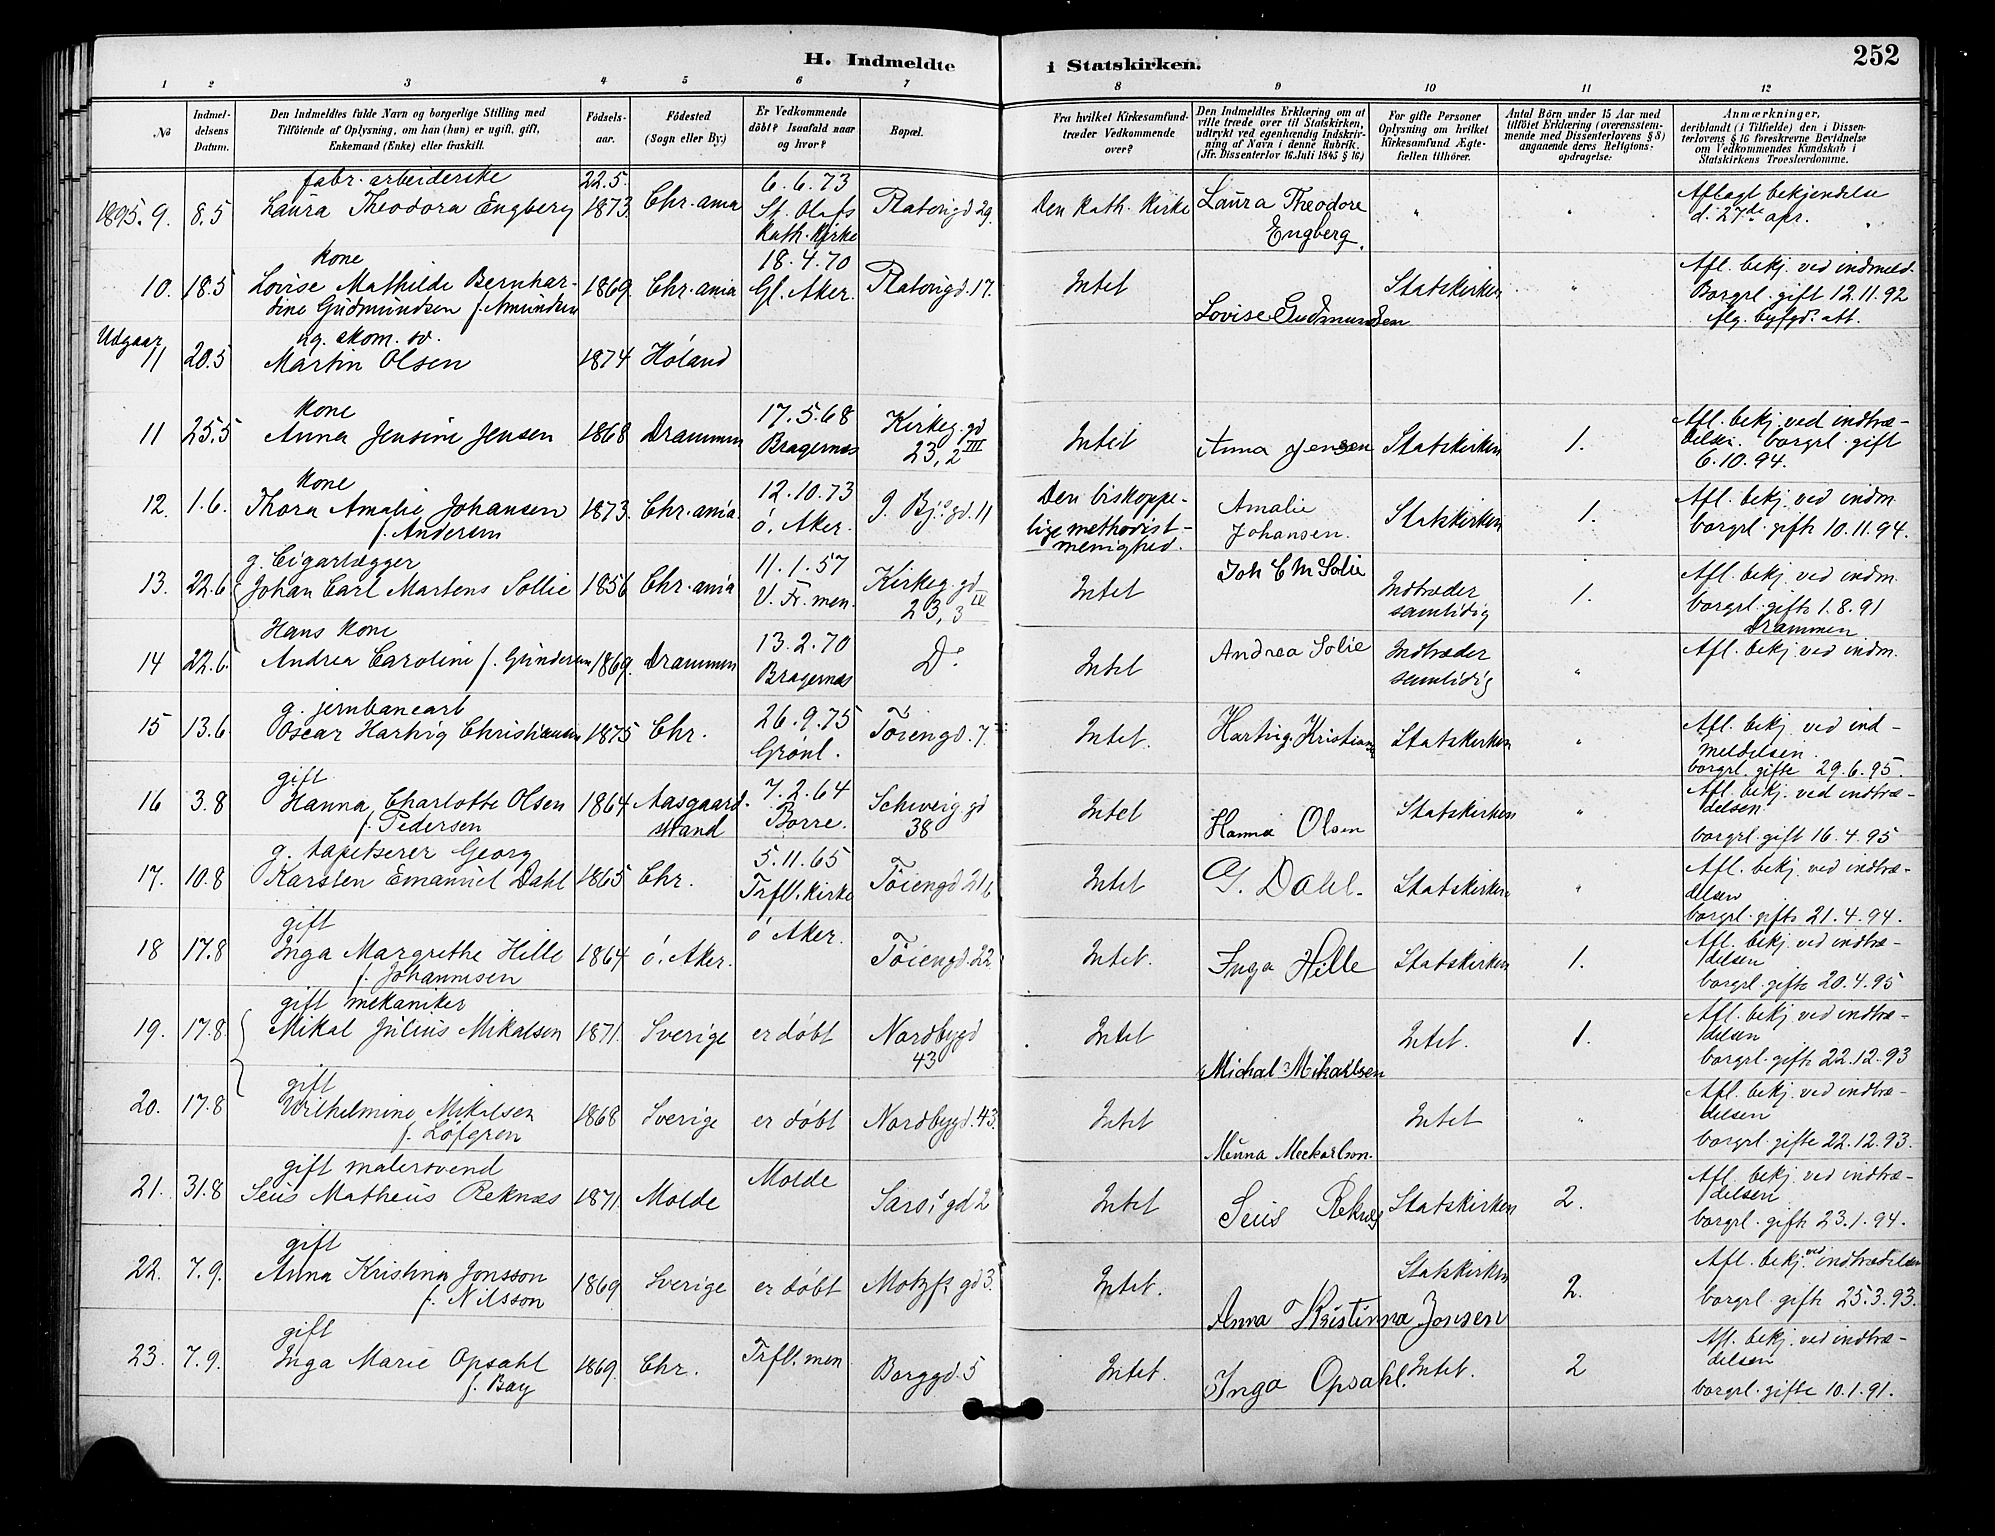 H. Indmeldte i Statskirken.
252
1 2 3 4 5 6 7 8 9 10 11 12
No
Indmel-
delsens
Datum.
Den Indmeldtes fulde Navn og borgerlige Stilling med
Tilföiende af Oplysning, om han (hun) er ugift, gift,
Enkemand (Enke) eller fraskilt.
Födsels-
aar.
Födested
(Sogn eller By.)
Er Vedkommende
döbt? Isaafald naar
og hvor?
Bopæl.
Fra hvilket Kirkesamfund-
træder Vedkommende
over?
Den Indmeldtes Erklæring om at
ville træde over til Statskirken,
udtrykt ved egenhændig Indskriv-
ning af Navn i denne Rubrik.
(Jfr. Dissenterlov 16 Juli 1845 § 16)
For gifte Personer
Oplysning om hvilket
Kirkesamfund Ægte-
fællen tilhörer.
Antal Börn under 15 Aar med
tilföiet Erklæring (overensstem-
mende med Dissenterlovens § 8)
angaaende deres Religions-
opdragelse:
Anmærkninger,
deriblandt (i Tilfælde) den i Dissen-
terlovens § 16 foreskrevne Bevidnelse
om Vedkommendes Kundskab i
Statskirkens Troeslærdomme.
fabr. arbeiderske 22.5. 6.6.73
1895. 9. 8.5 Laura Theodora Engberg 1873 Chr.ania St. Olafs Platousgd 29. Den kath. Kirke Laura Theodore " " Aflagt bekjendelse
Kath. Kirke Engberg. d. 27de apr. "
kone 18.4.70
10. 18.5 Lovise Mathilde Bernhar- 1869. Chr.ania Gl. Aker. Platousgd. 17. Intet Statskirken " Afl. bekj. ved indmeld.
dine Gudmundsen f. Amundsen Lovise Gudmundsen Borgrl. gift 12.11.92
flg. byfgd. att.
Udgaar ug. skom. sv.
11 20.5 Martin Olsen 1874 Höland
kone 17.5.68
11 25.5 Anna Jensine Jensen 1868 Drammen Bragernæs Kirkeg. gd Intet Anna Jensen Statskirken 1. Afl. bekj. ved indtræ-
23, 2 III delsen. borgrl. gift
6.10.94.
kone 12.10.73
12. 1.6. Thora Amalie Johansen 1873. Chr.ania. ö. Aker. g. Bj.s gd. 11 Den biskoppe- Amalie Statskirken 1. Afl. bekj. ved indm.
f. Andersen lige methodist- Johansen. borgrl. gift 10.11.94.
menighed.
g. Cigarlægger 11.1.57
13. 22.6 Johan Carl Martens Sollie 1856 Chr.ania V. Fr. men. Kirkeg. gd Intet Joh C M Solie Indtræder 1. Afl. bekj. ved indm.
23, 3 IV samtidig borgrl. gift 1.8.91
Drammen
Hans kone 13.2.70
14 22.6. Andrea Caroline f. Gundersen 1869. Drammen Bragernæs Do Intet Andrea Solie Indtræder " Afl. bekj. ved indm.
samtidig
g. jernbanearb 26.9.75
15 13.6 Oscar Hartvig Christiansen 1875 Chr. Grönl. Töiengd. 7. Intet. Hartvig Kristians Statskirken " Afl. bekj. ved ind-
meldelsen
borgrl. gifte 29.6.95.
gift 7.2.64
16 3.8 Hanna Charlotte Olsen 1864 Aasgaard- Borre. Schweig. gd Intet Hanna Olsen Statskirken " Afl. bekj. ved indtræ-
f. Pedersen strand 38 delsen.
borgrl. gift 16.4.95
g. tapetserer Georg 5.11.65
17. 10.8 Karsten Emanuel Dahl 1865 Chr. Trfl. Kirke Töiengd 21b Intet G. Dahl. Statskirken " Afl. bekj. ved indtræ-
delsen
borgrl. gift 21.4.94.
gift ö Aker.
18 17.8 Inga Margrethe Hille 1864 ö. Aker. Töiengd. 22 Intet. Inga Hille Statskirken 1. Afl. bekj. ved indtræ-
f. Johannesen delsen
borgrl. gift 20.4.95
gift mekaniker
19. 17.8 Mikal Julius Mikalsen 1871. Sverige er döbt Nordbygd Intet Michal Mikarlsen Intet. 1. Afl. bekj. ved indtræ-
43 delsen
borgrl. gift 22.12.93
gift
20. 17.8 Wilhelmine Mikalsen 1868 Sverige er döbt Nordbygd. 43. Intet Minna Meekarlson. Intet " Afl. bekj. ved indtræ-
f. Löfgren delsen
borgrl. gifte 22.12.93.
gift malersvend Molde
21. 31.8 Seüs Matheus Reknæs 1871. Molde Sarsi gd 2 Intet Seüs Reknæs Statskirken 2. Afl. bekj. ved indtræ-
delsen
borgrl. gift 23.1.94.
gift
22. 7.9. Anna Kristina Jonsson 1869 Sverige er döbt Motzfs gd 3. Intet. Anna Kristinna Jonsen Statskirken 2. Afl. bekj. ved indtrædelsen
f. Nilsson borgrl. gift 25.3.93.
gift
23. 7.9. Inga Marie Opsahl 1869. Chr. Trfl. men Borggd. 5 Intet. Inga Opsahl. Intet. 2 Afl. bekj. ved indtræ-
f. Bay delsen
borgrl. gifte 10.1.91.